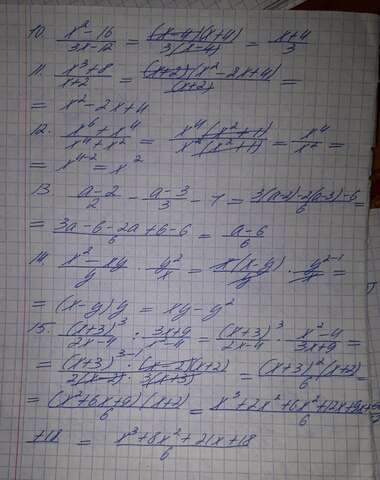 10. (x²-16)/(3x-12) = ((x-4)(x+4))/(3(x-4)) = (x+4)/3
11. (x³+8)/(x+2) = ((x+2)(x²-2x+4))/(x+2) =
= x²-2x+4
12. (x⁶+x⁴)/(x⁴+x²) = (x⁴(x²+1))/(x²(x²+1)) = x⁴/x² =
= x⁴⁻² = x²
13. (a-2)/2 - (a-3)/3 - 1 = (3(a-2)-2(a-3)-6)/6 =
= (3a-6-2a+6-6)/6 = (a-6)/6
14. (x²-xy)/y · y²/x = (x(x-y))/y · y²⁻¹/x =
= (x-y)y = xy-y²
15. (x+3)³/(2x-4) : (3x+9)/(x²-4) = (x+3)³/(2x-4) · (x²-4)/(3x+9) =
= ((x+3)³⁻¹ · (x-2)(x+2))/(2(x-2) · 3(x+3)) = ((x+3)²(x+2))/6 =
= ((x²+6x+9)(x+2))/6 = (x³+2x²+6x²+12x+9x+)/6
+18 = (x³+8x²+21x+18)/6